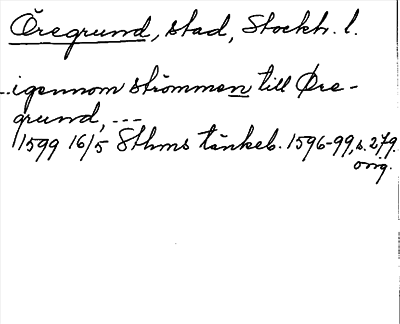 Öregrund, stad, Stockh. l.
..igennom strömmen till Øre-
grund, ---
1599 16/5 Sthms tänkeb. 1596-99, s. 279.
orig.